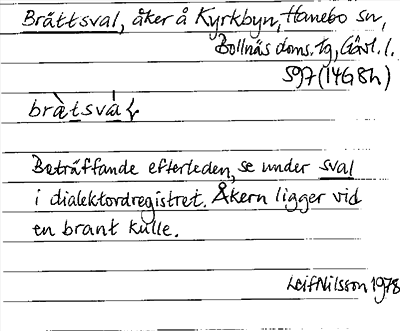 Brättsval, åker å Kyrkbyn, Hanebo sn,
Bollnäs doms. tg, Gävl. l.
S97 (14G8h)
Beträffande efterleden, se under sval
i dialektordregistret. Åkern ligger vid
en brant kulle.
Leif Nilsson 1978